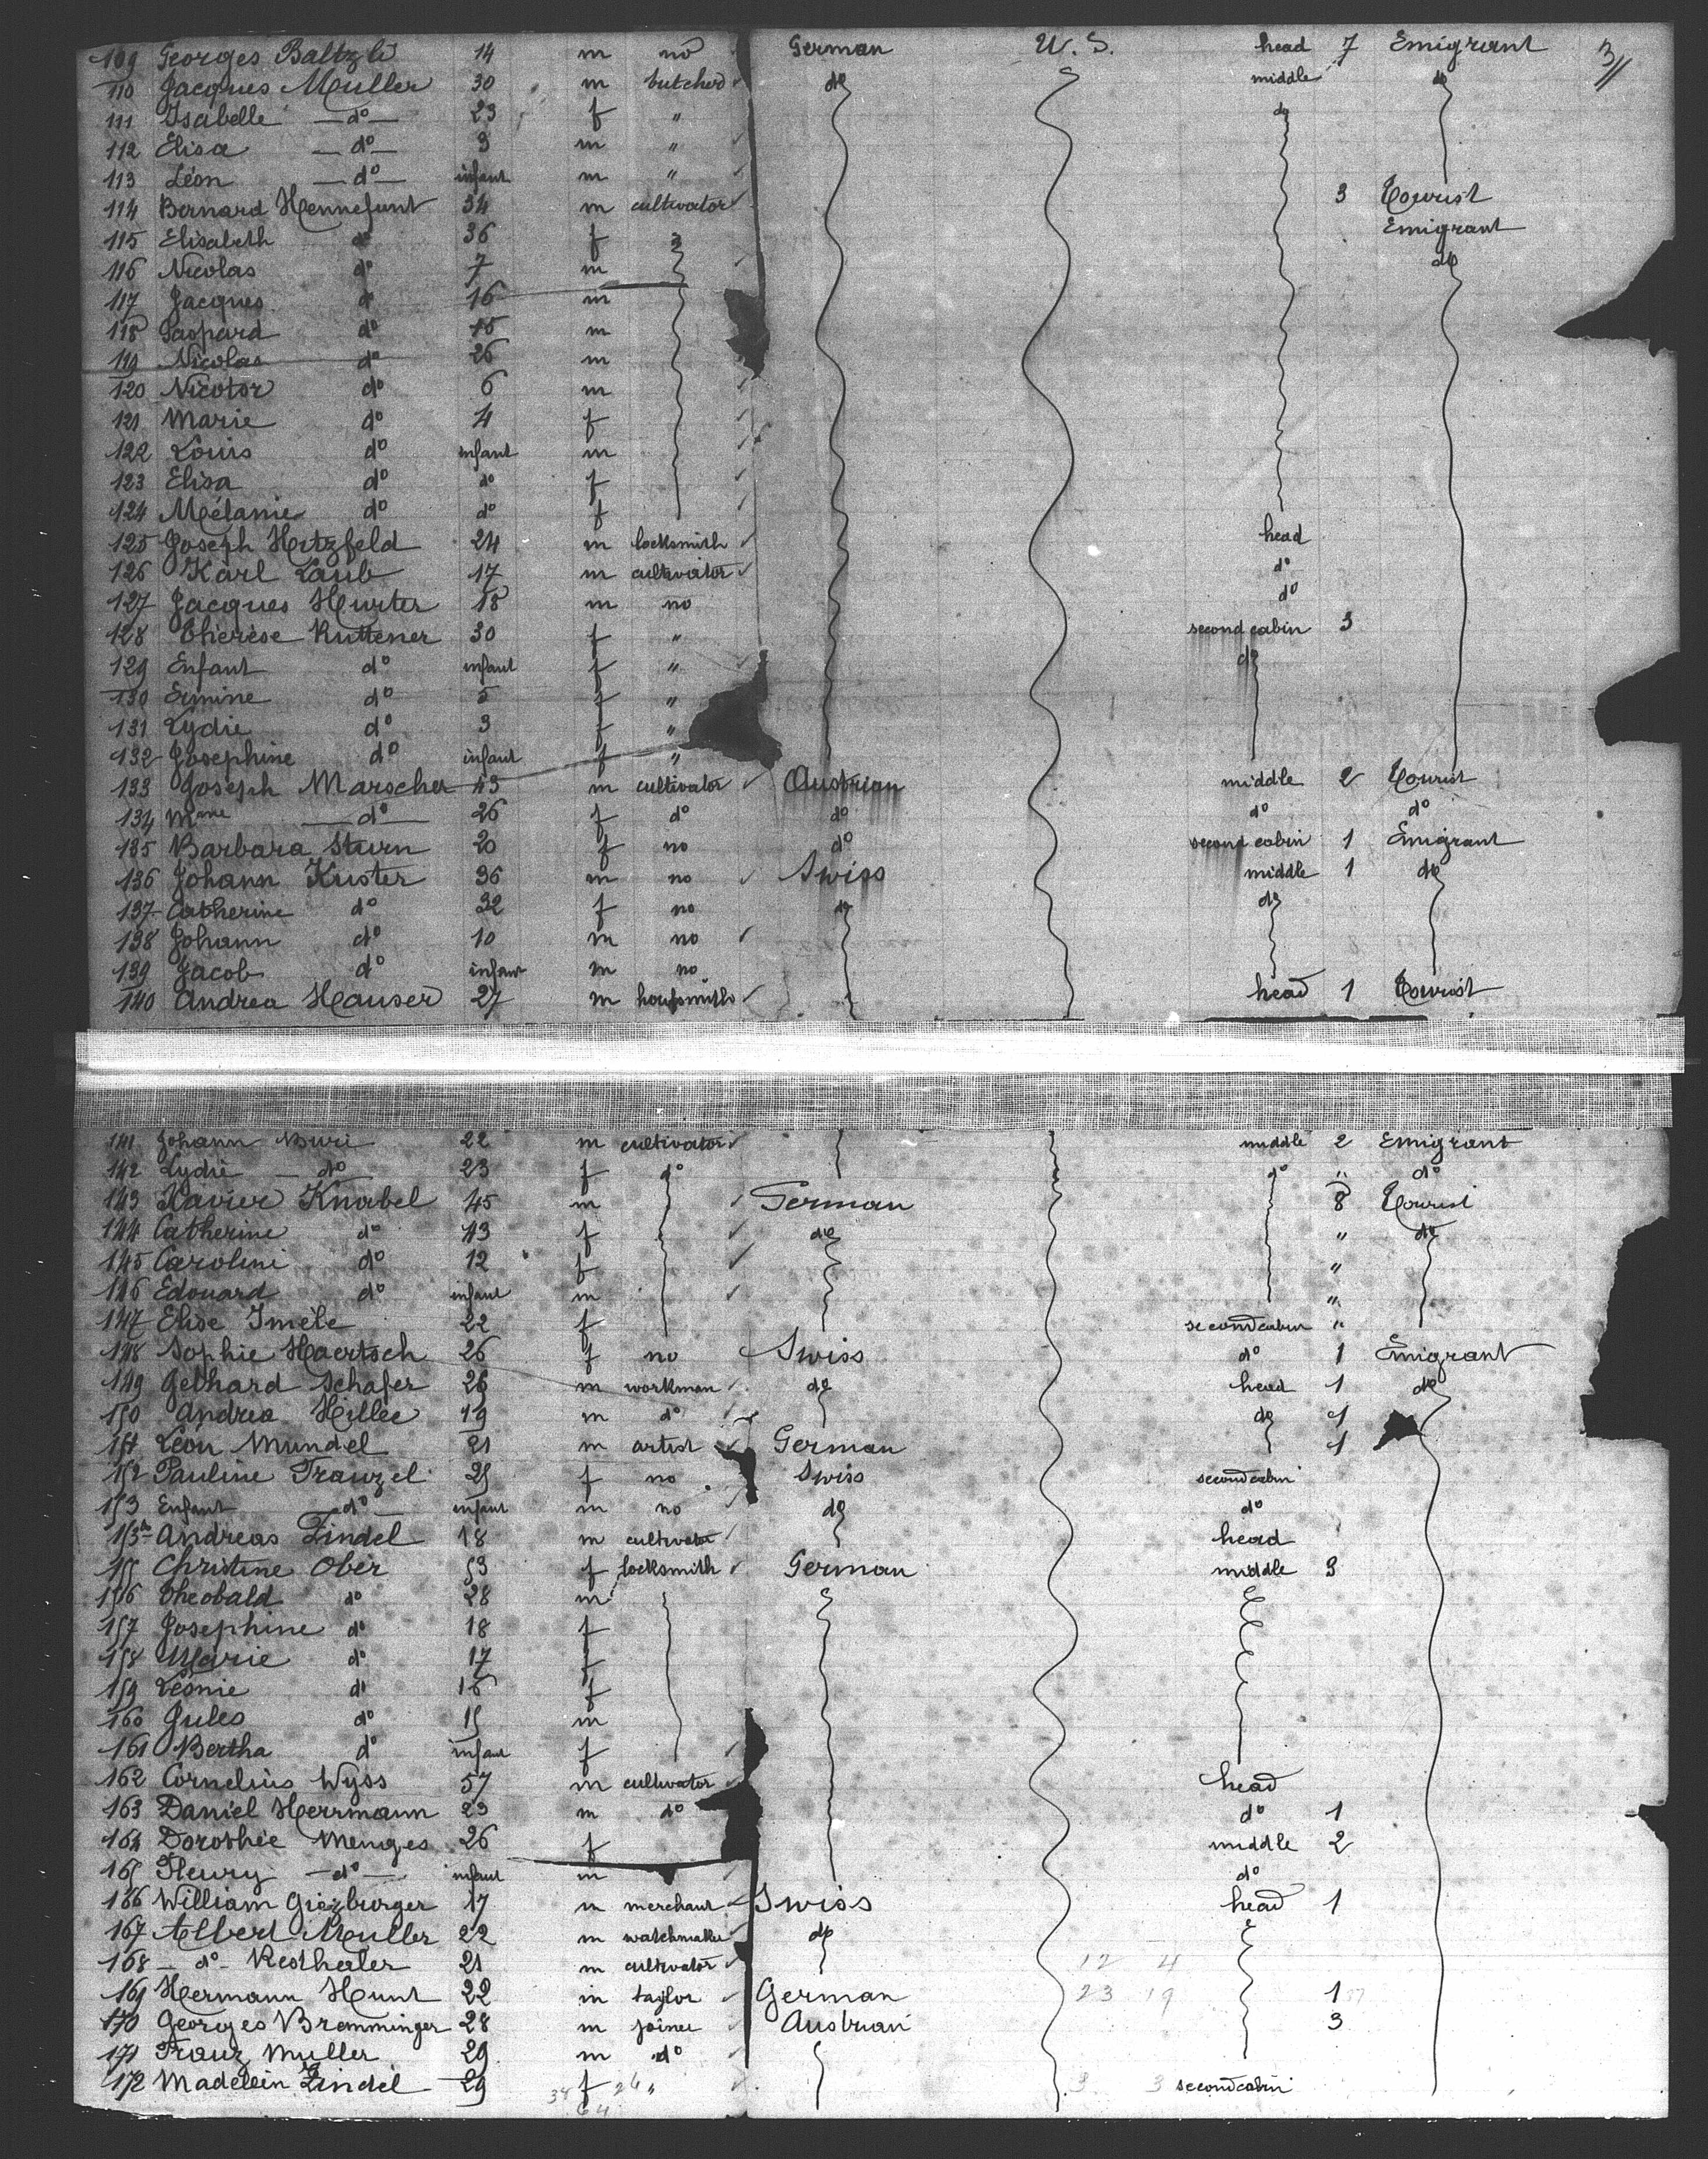 109 Georges Baltzli 14 m no German U. S. head 7 Emigrant 3//
110 Jacques Muller 30 m butcher do middle do
111 Isabelle —do— 23 f " do
112 Elisa —do— 9 m "
113 Léon —do— infant m "
114 Bernard Hennefunt 34 m cultivator 3 Tourist
115 Elisabeth do 36 f Emigrant
116 Nicolas do 7 m do
117 Jacques do 16 m
118 Gaspard do 15 m
119 Nicolas do 26 m
120 Nicotor do 6 m
121 Marie do 4 f
122 Louis do infant m
123 Elisa do do f
124 Mélanie do do f
125 Joseph Hertzfeld 24 m locksmith head
126 Karl Laub 17 m cultivator do
127 Jacques Hurter 18 m no do
128 Therèse Ruttener 30 f " second cabin 3
129 Enfant do infant f " do
130 Ermine do 5 f "
131 Lydie do 3 f "
132 Josephine do infant f "
133 Joseph Marscher 43 m cultivator Austrian middle 2 Tourist
134 Mme —do— 26 f do do do do
135 Barbara Sturn 20 f no do second cabin 1 Emigrant
136 Johann Kuster 36 m no Swiss middle 1 do
137 Catherine do 32 f no do do
138 Johann do 10 m no
139 Jacob do infant m no
140 Andrea Hauser 27 m head 1 Tourist
141 Johann Buri 22 m cultivator middle 2 Emigrant
142 Lydie —do 23 f do do " do
143 Xavier Knabel 45 m German 8 Tourist
144 Catherine do 43 f do " do
145 Carolini do 12 f "
146 Edouard do infant m "
147 Elise Imele 22 f second cabin "
148 Sophie Haertsch 26 f no Swiss do 1 Emigrant
149 Gebhard Schafer 26 m workman do head 1 do
150 Andrea Hillee 19 m do do 1
151 Léon Mundel 21 m artist German 1
152 Pauline Franzel 25 f no Swiss second cabin
153 Enfant do infant m no do do
154 Andreas Zindel 18 m cultivator head
155 Christine Ober 53 f locksmith German middle 3
156 Theobald do 28 m
157 Josephine do 18 f
158 Marie do 17 f
159 Léonie do 16 f
160 Jules do 15 m
161 Bertha do infant f
162 Cornelius Wyss 57 m cultivator head
163 Daniel Herrmann 23 m do do 1
164 Dorothée Menges 26 f middle 2
165 Fleury —do— infant m do
166 William Ginzburger 17 m merchant Swiss head 1
167 Albert Muller 22 m watchmaker do
168 —do— Resthaler 21 m cultivator 12 4
169 Hermann Hunt 22 m taylor German 23 19 1
170 Georges Bremminger 28 m joiner Austrian 3
171 Franz Muller 29 m do
172 Madelein Zindel 29 f " 3 3 second cabin